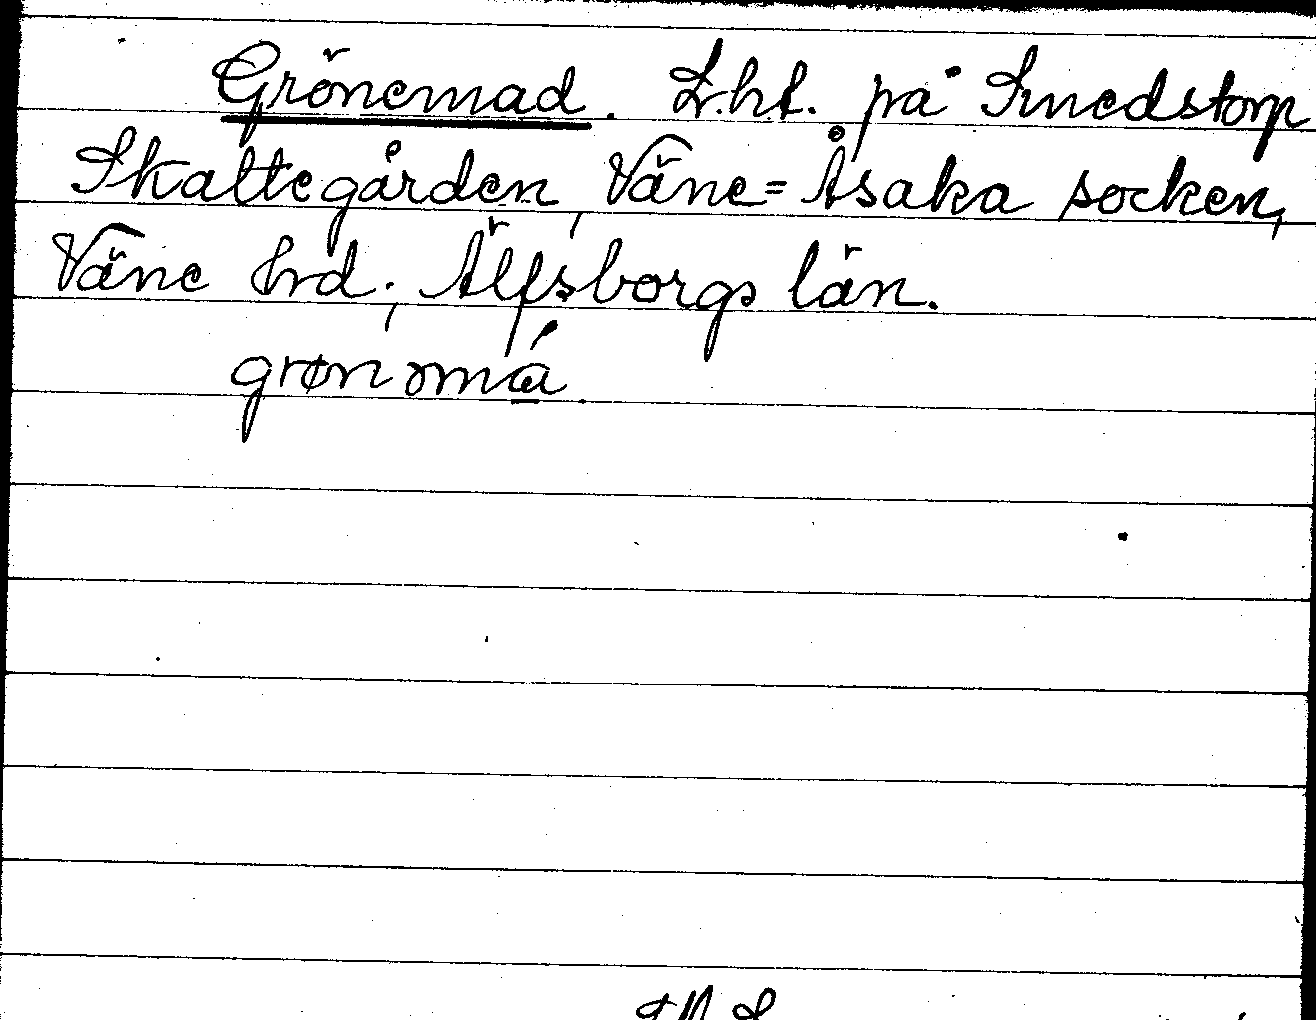 Grönemad. L.ht. på Smedstorp
Skattegården, Väne-Åsaka socken,
Väne hrd., Älfsborgs län.
grøn əmá